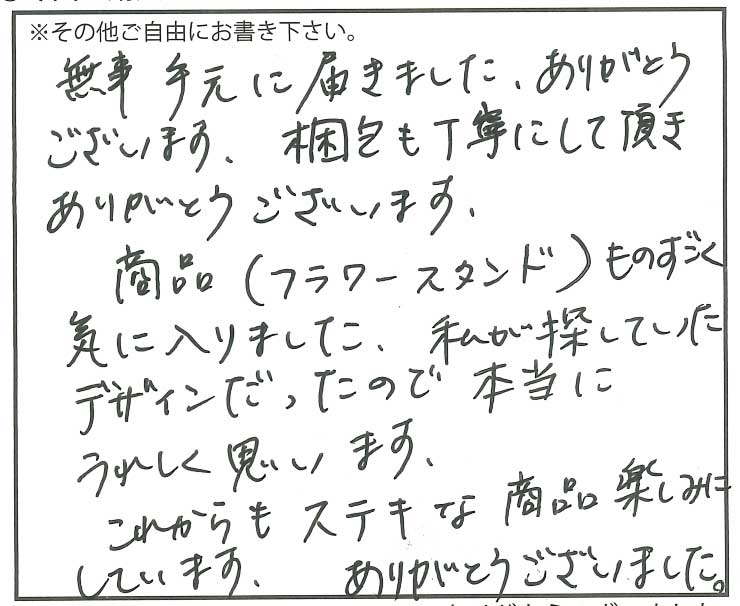 ※その他ご自由にお書き下さい。
無事 手元に届きました、ありがとう
ございます、梱包も丁寧にして頂き
ありがとうございます、
商品(フラワースタンド)ものすごく
気に入りました、私が探していた
デザインだったので本当に
うれしく思います、
これからもステキな商品楽しみに
しています、 ありがとうございました。